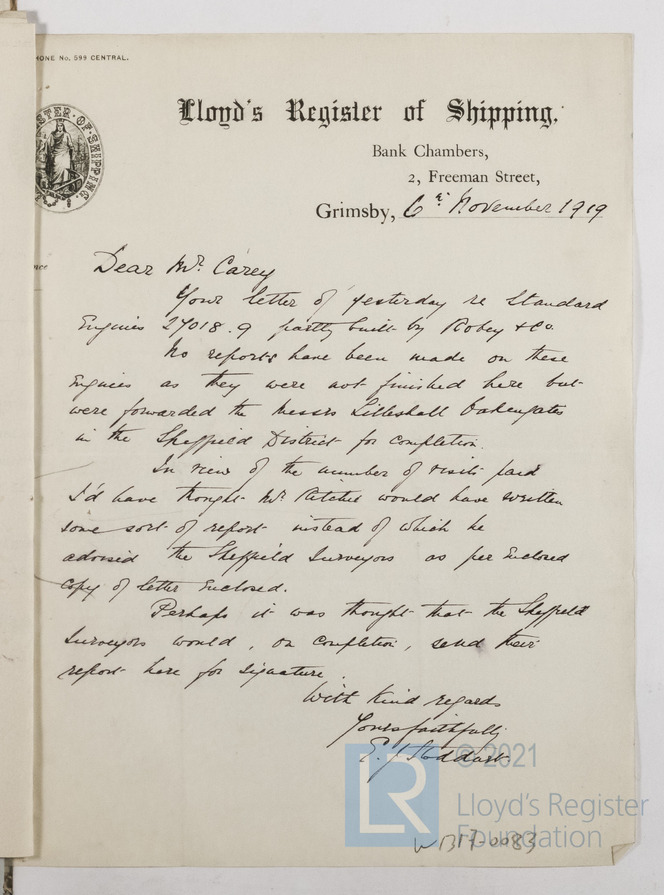 HONE No. 599 CENTRAL.
STER·OF·SHIPPING
Lloyd's Register of Shipping,
Bank Chambers,
2, Freeman Street,
Grimsby, 6th November 1919
nce
Dear Mr. Carey
Your letter of yesterday re Standard
Engines 27018.9 partly built by Robey & Co.
No reports have been made on these
Engines as they were not finished here but
were forwarded to Messrs Lilleshall Oakengates
in the Sheffield District for completion.
In view of the number of visits paid
I'd have thought Mr Ritchie would have written
some sort of report instead of which he
advised the Sheffield Surveyors as per Enclosed
copy of letter Enclosed.
Perhaps it was thought that the Sheffield
Surveyors would, on completion, send their
report here for signature.
With Kind regards
Yours faithfully
E. J Stoddart
© 2021
LR
Lloyd's Register
Foundation
WB17-0083